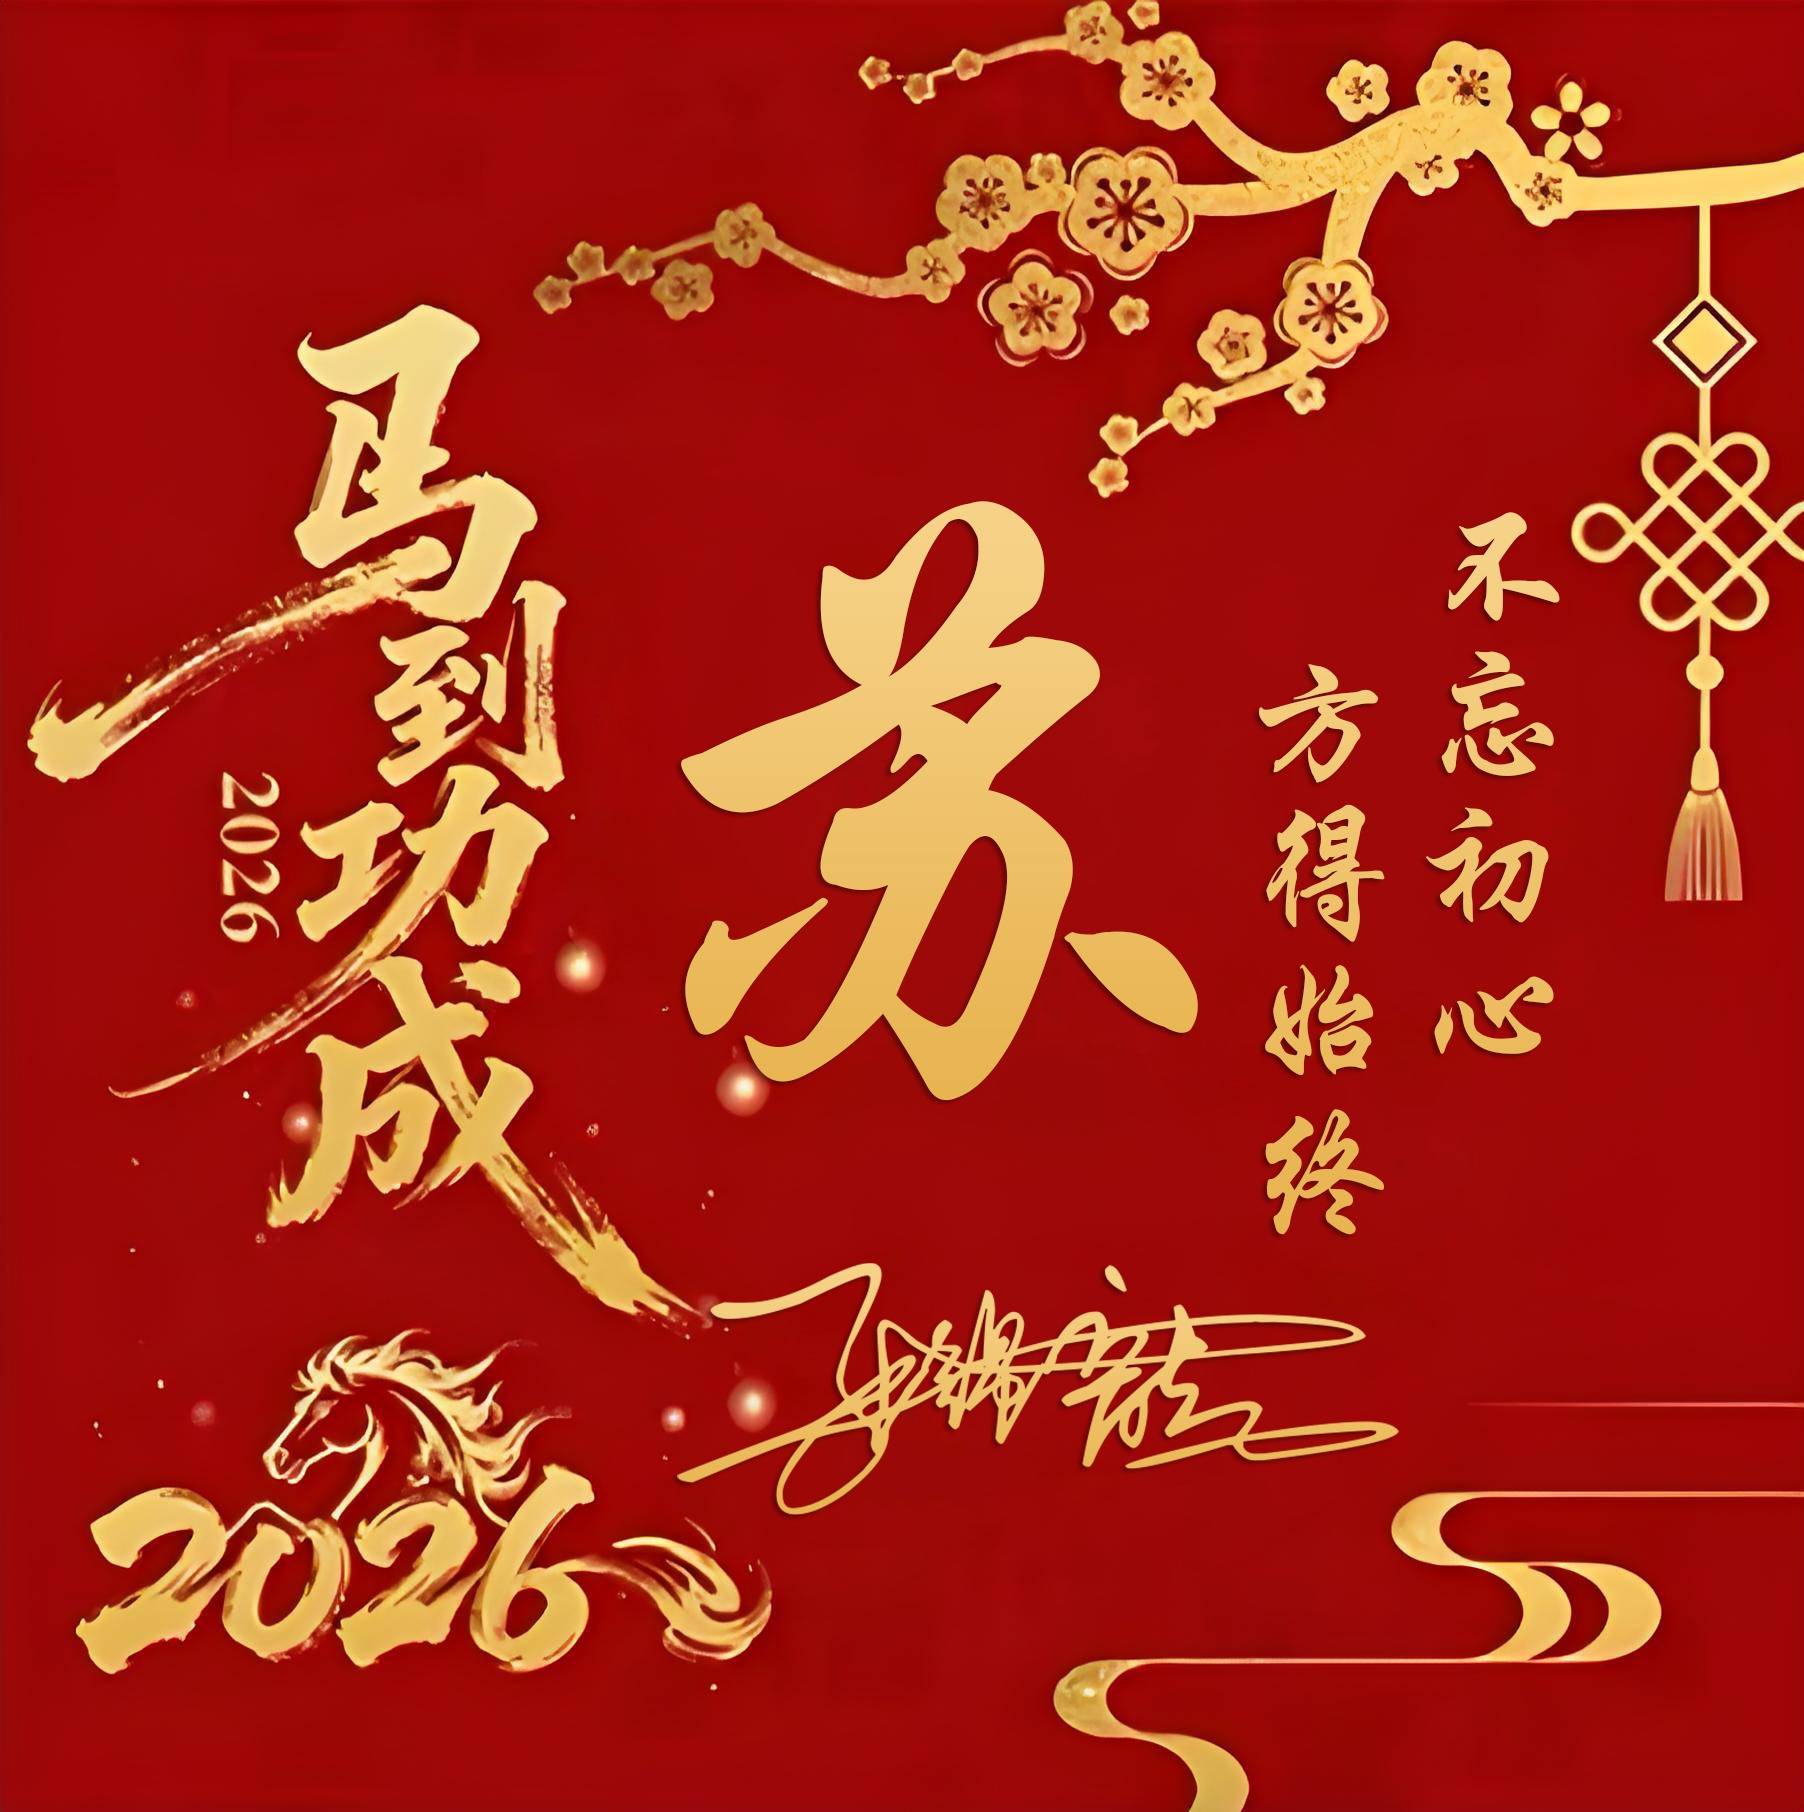 马到功成
2026
苏
不忘初心
方得始终
2026